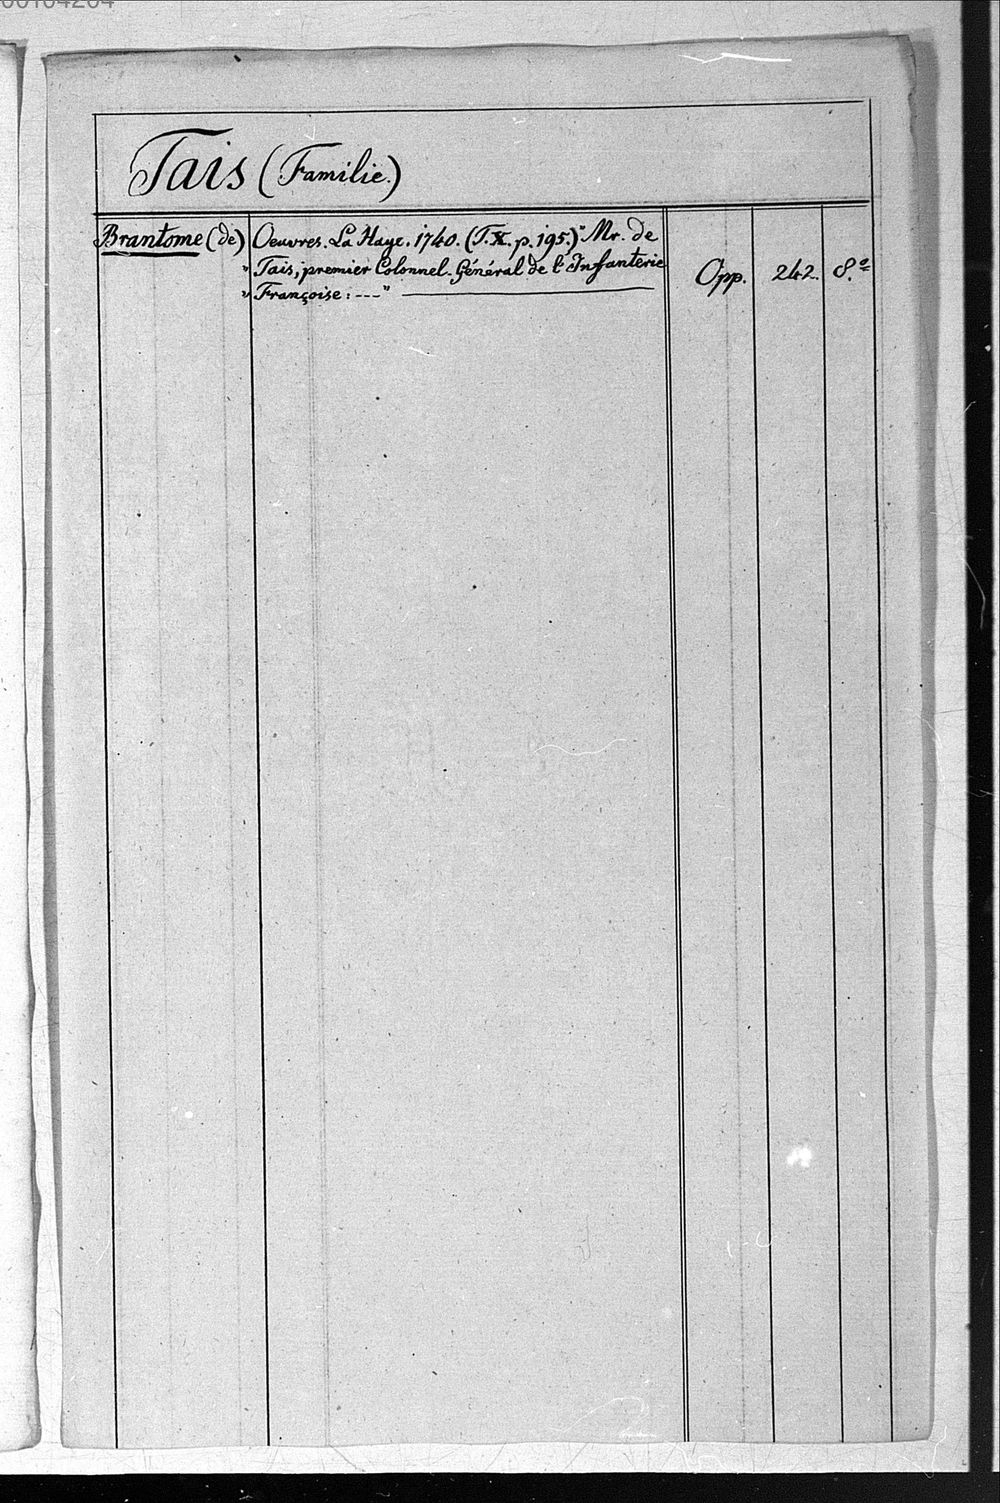 Tais (Familie.)
Brantome (de) Oeuvres. La Haye. 1740. (T. X. p. 195.) "Mr. de
" Tais, premier Colonnel-Général de l'Infanterie Opp. 242. 8.º
" Françoise: ---"